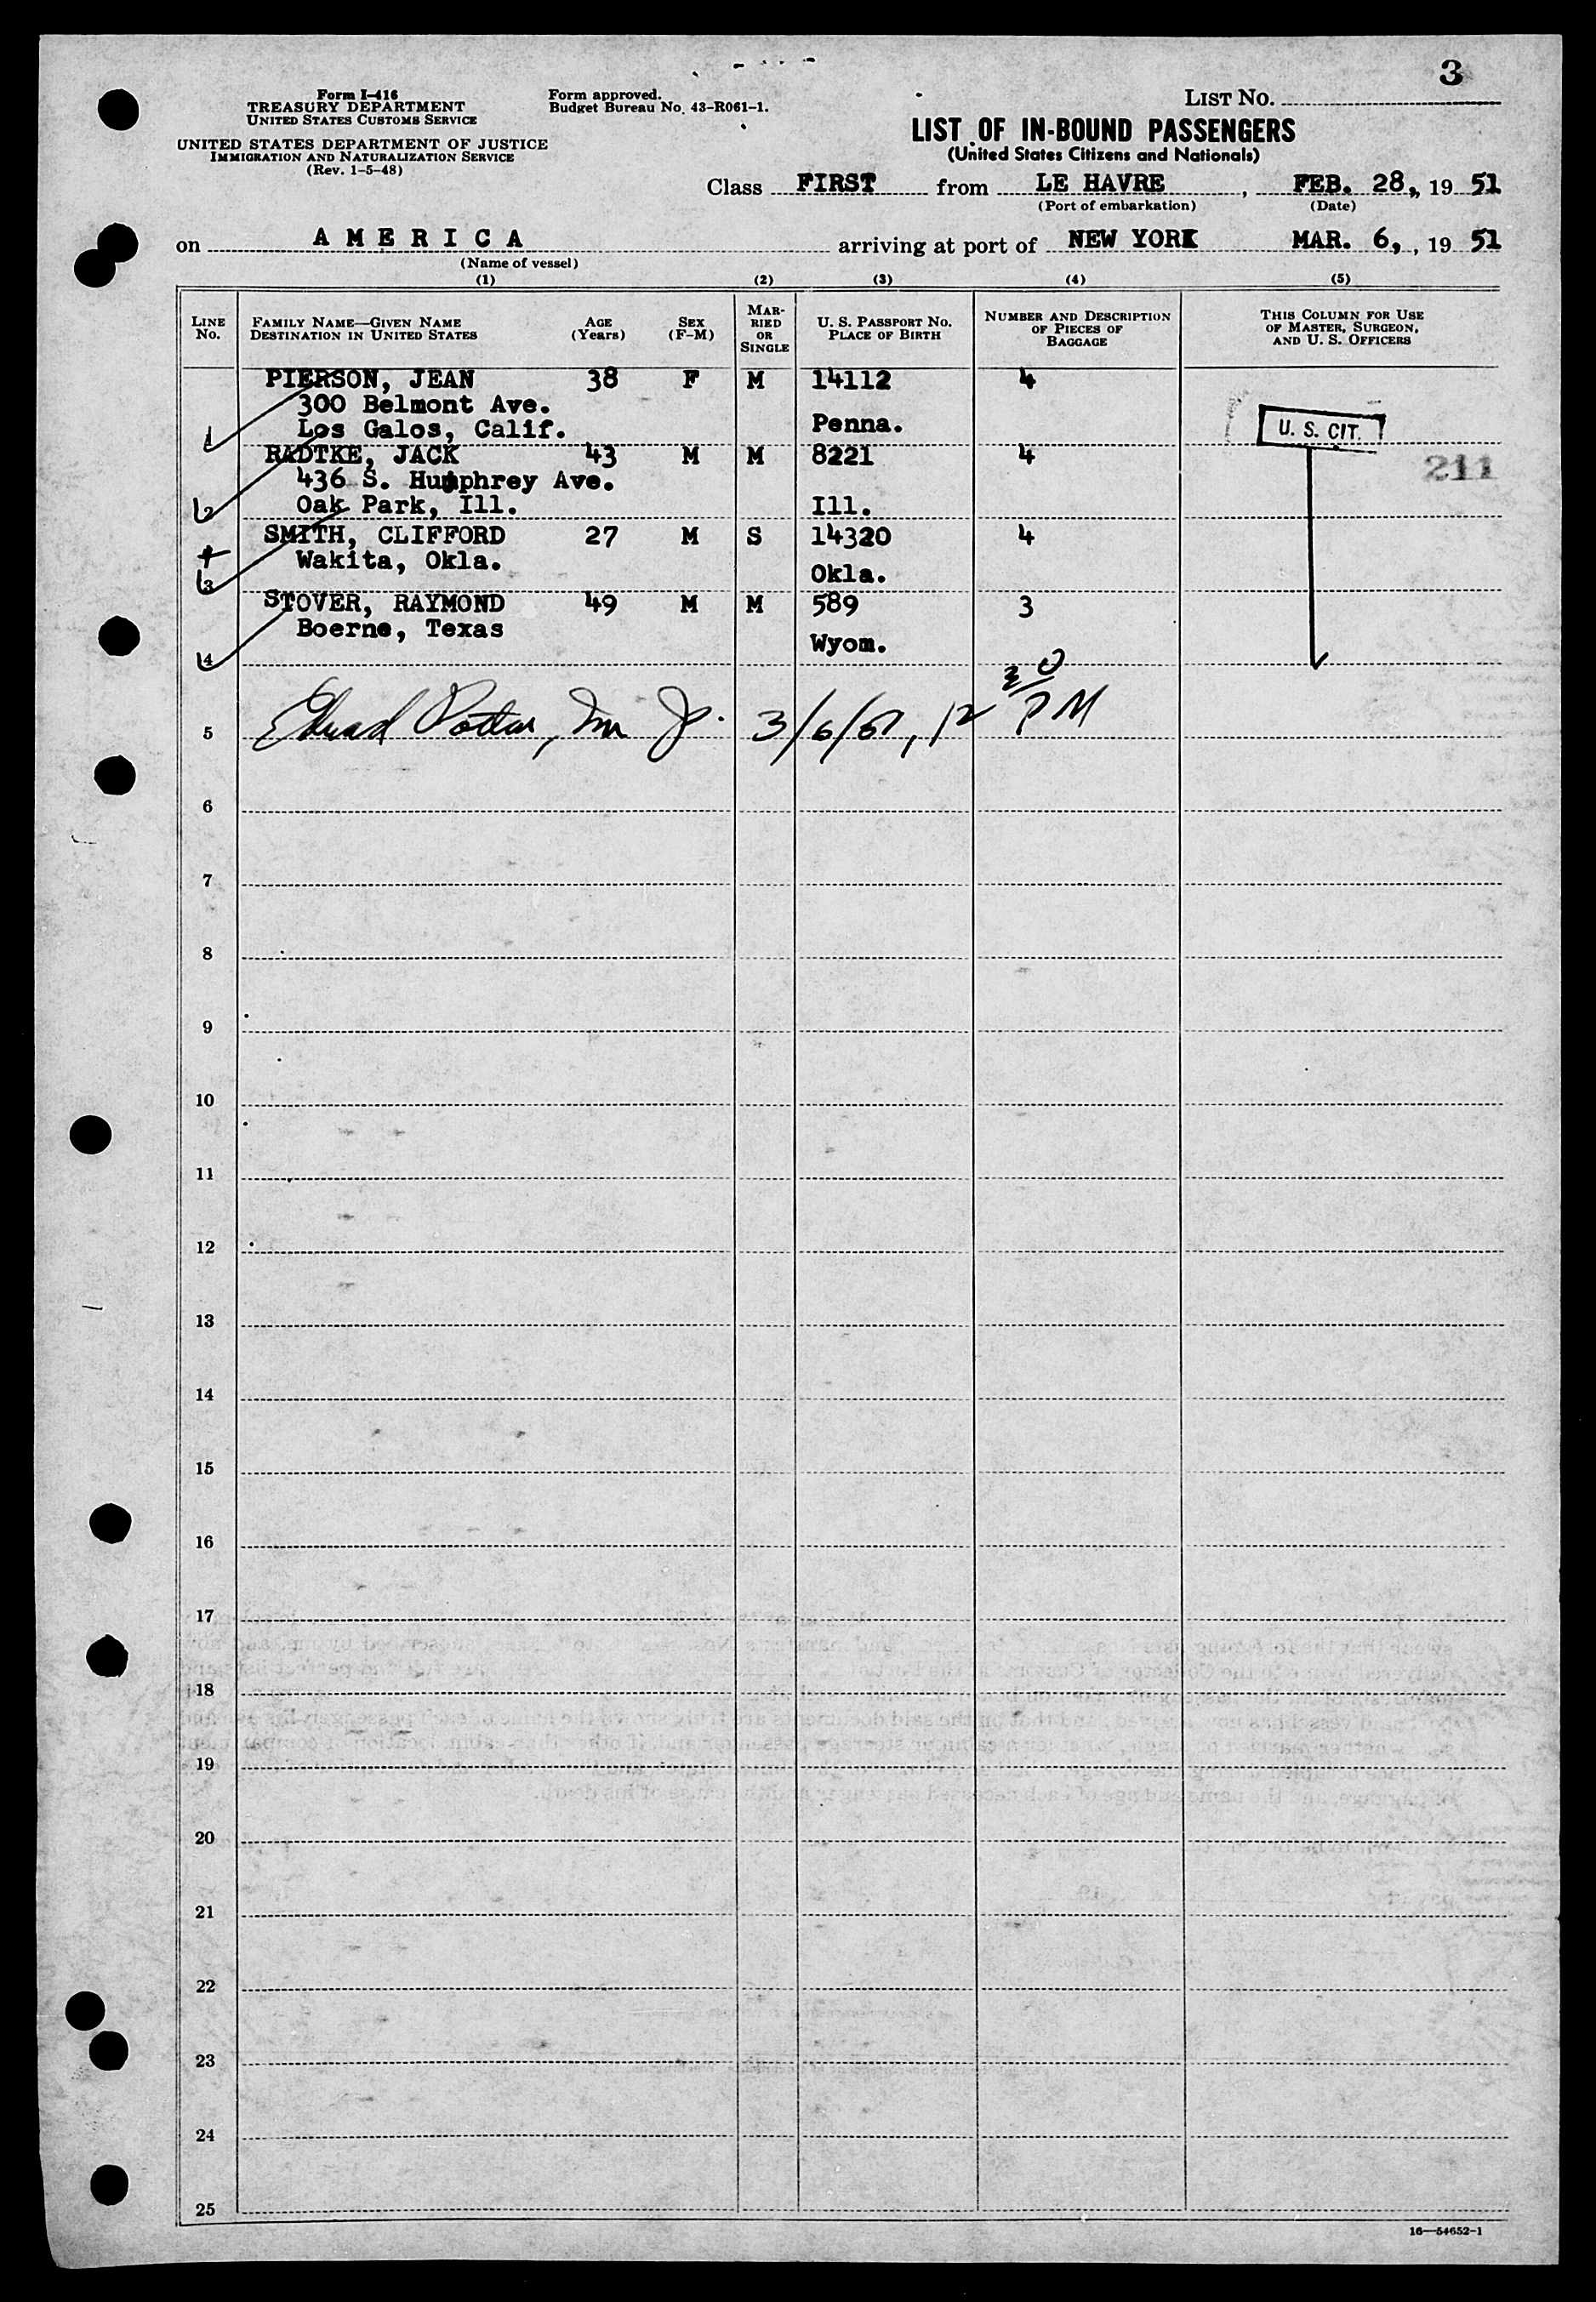 3
Form I-416
TREASURY DEPARTMENT
UNITED STATES CUSTOMS SERVICE
UNITED STATES DEPARTMENT OF JUSTICE
IMMIGRATION AND NATURALIZATION SERVICE
(Rev. 1-5-48)
Form approved.
Budget Bureau No. 43-R061-1.
LIST NO.
LIST OF IN-BOUND PASSENGERS
(United States Citizens and Nationals)
Class FIRST from LE HAVRE, FEB. 28, 19 51
(Port of embarkation) (Date)
on AMERICA arriving at port of NEW YORK MAR. 6, , 19 51
(Name of vessel)
(1) (2) (3) (4) (5)
LINE No. FAMILY NAME—GIVEN NAME DESTINATION IN UNITED STATES AGE (Years) SEX (F-M) MARRIED OR SINGLE U. S. PASSPORT NO. PLACE OF BIRTH NUMBER AND DESCRIPTION OF PIECES OF BAGGAGE THIS COLUMN FOR USE OF MASTER, SURGEON, AND U. S. OFFICERS
PIERSON, JEAN 38 F M 14112 4
300 Belmont Ave.
1 Los Galos, Calif. Penna. U. S. CIT.
RADTKE, JACK 43 M M 8221 4 211
436 S. Humphrey Ave.
2 Oak Park, Ill. Ill.
SMITH, CLIFFORD 27 M S 14320 4
Wakita, Okla.
3 Okla.
STOVER, RAYMOND 49 M M 589 3
Boerne, Texas
4 Wyom.
5 3/6/51, 12 30 PM
6
7
8
9
10
11
12
13
14
15
16
17
18
19
20
21
22
23
24
25
16—54652-1